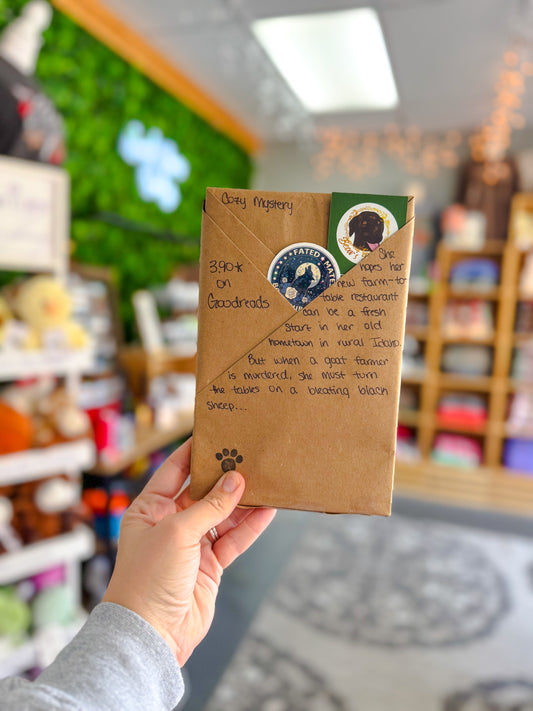 Cozy Mystery
3.90*
on
Goodreads
FATED MATE
She
hopes her
new farm-to-
table restaurant
can be a fresh
start in her old
hometown in rural Idaho.
But when a goat farmer
is murdered, she must turn
the tables on a bleating black
sheep...